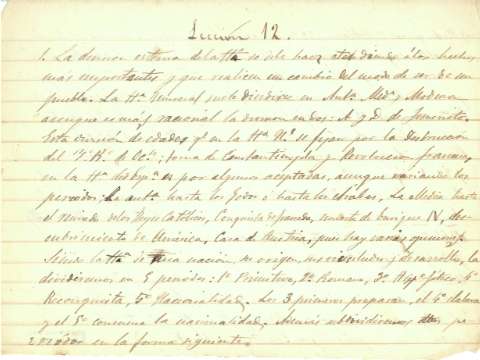 Lección 12.
1. La división externa de la Hª se debe hacer atendiendo á los hechos
mas importantes y que realicen un cambio del modo de ser de un
pueblo. La Hª Universal suele dividirse en Antª Medª y Moderna
aunque es más racional la división en dos: A. y D. de Jesucristo.
Esta división de edades qᵉ en la Hª Uˡ se fijan por la destrucción
del Yº Rº de Occᵗᵉ; toma de Constantinopla y Revolución francesa,
en la Hª de Espª por algunos aceptadas, aunque variando los
periodos: La antª hasta los Godos ó hasta los árabes, La Media hasta
el reinado de los Reyes Católicos, Conquista de Granada, muerte de Enrique IV, des-
cubrimiento de América, Casa de Austria, pues hay varias opiniones.
la Hª de una nación, su origen, y desarrollo, la
dividiremos en 5 periodos: 1º Primitivo, 2º Romano, 3º Hispº-gótico, 4º
Reconquista, 5º Nacionalidad. Los 3 primeros preparan, el 4º elabora
y el 5º consuma la nacionalidad. Además subdividiremos los pe-
riodos en la forma siguiente.